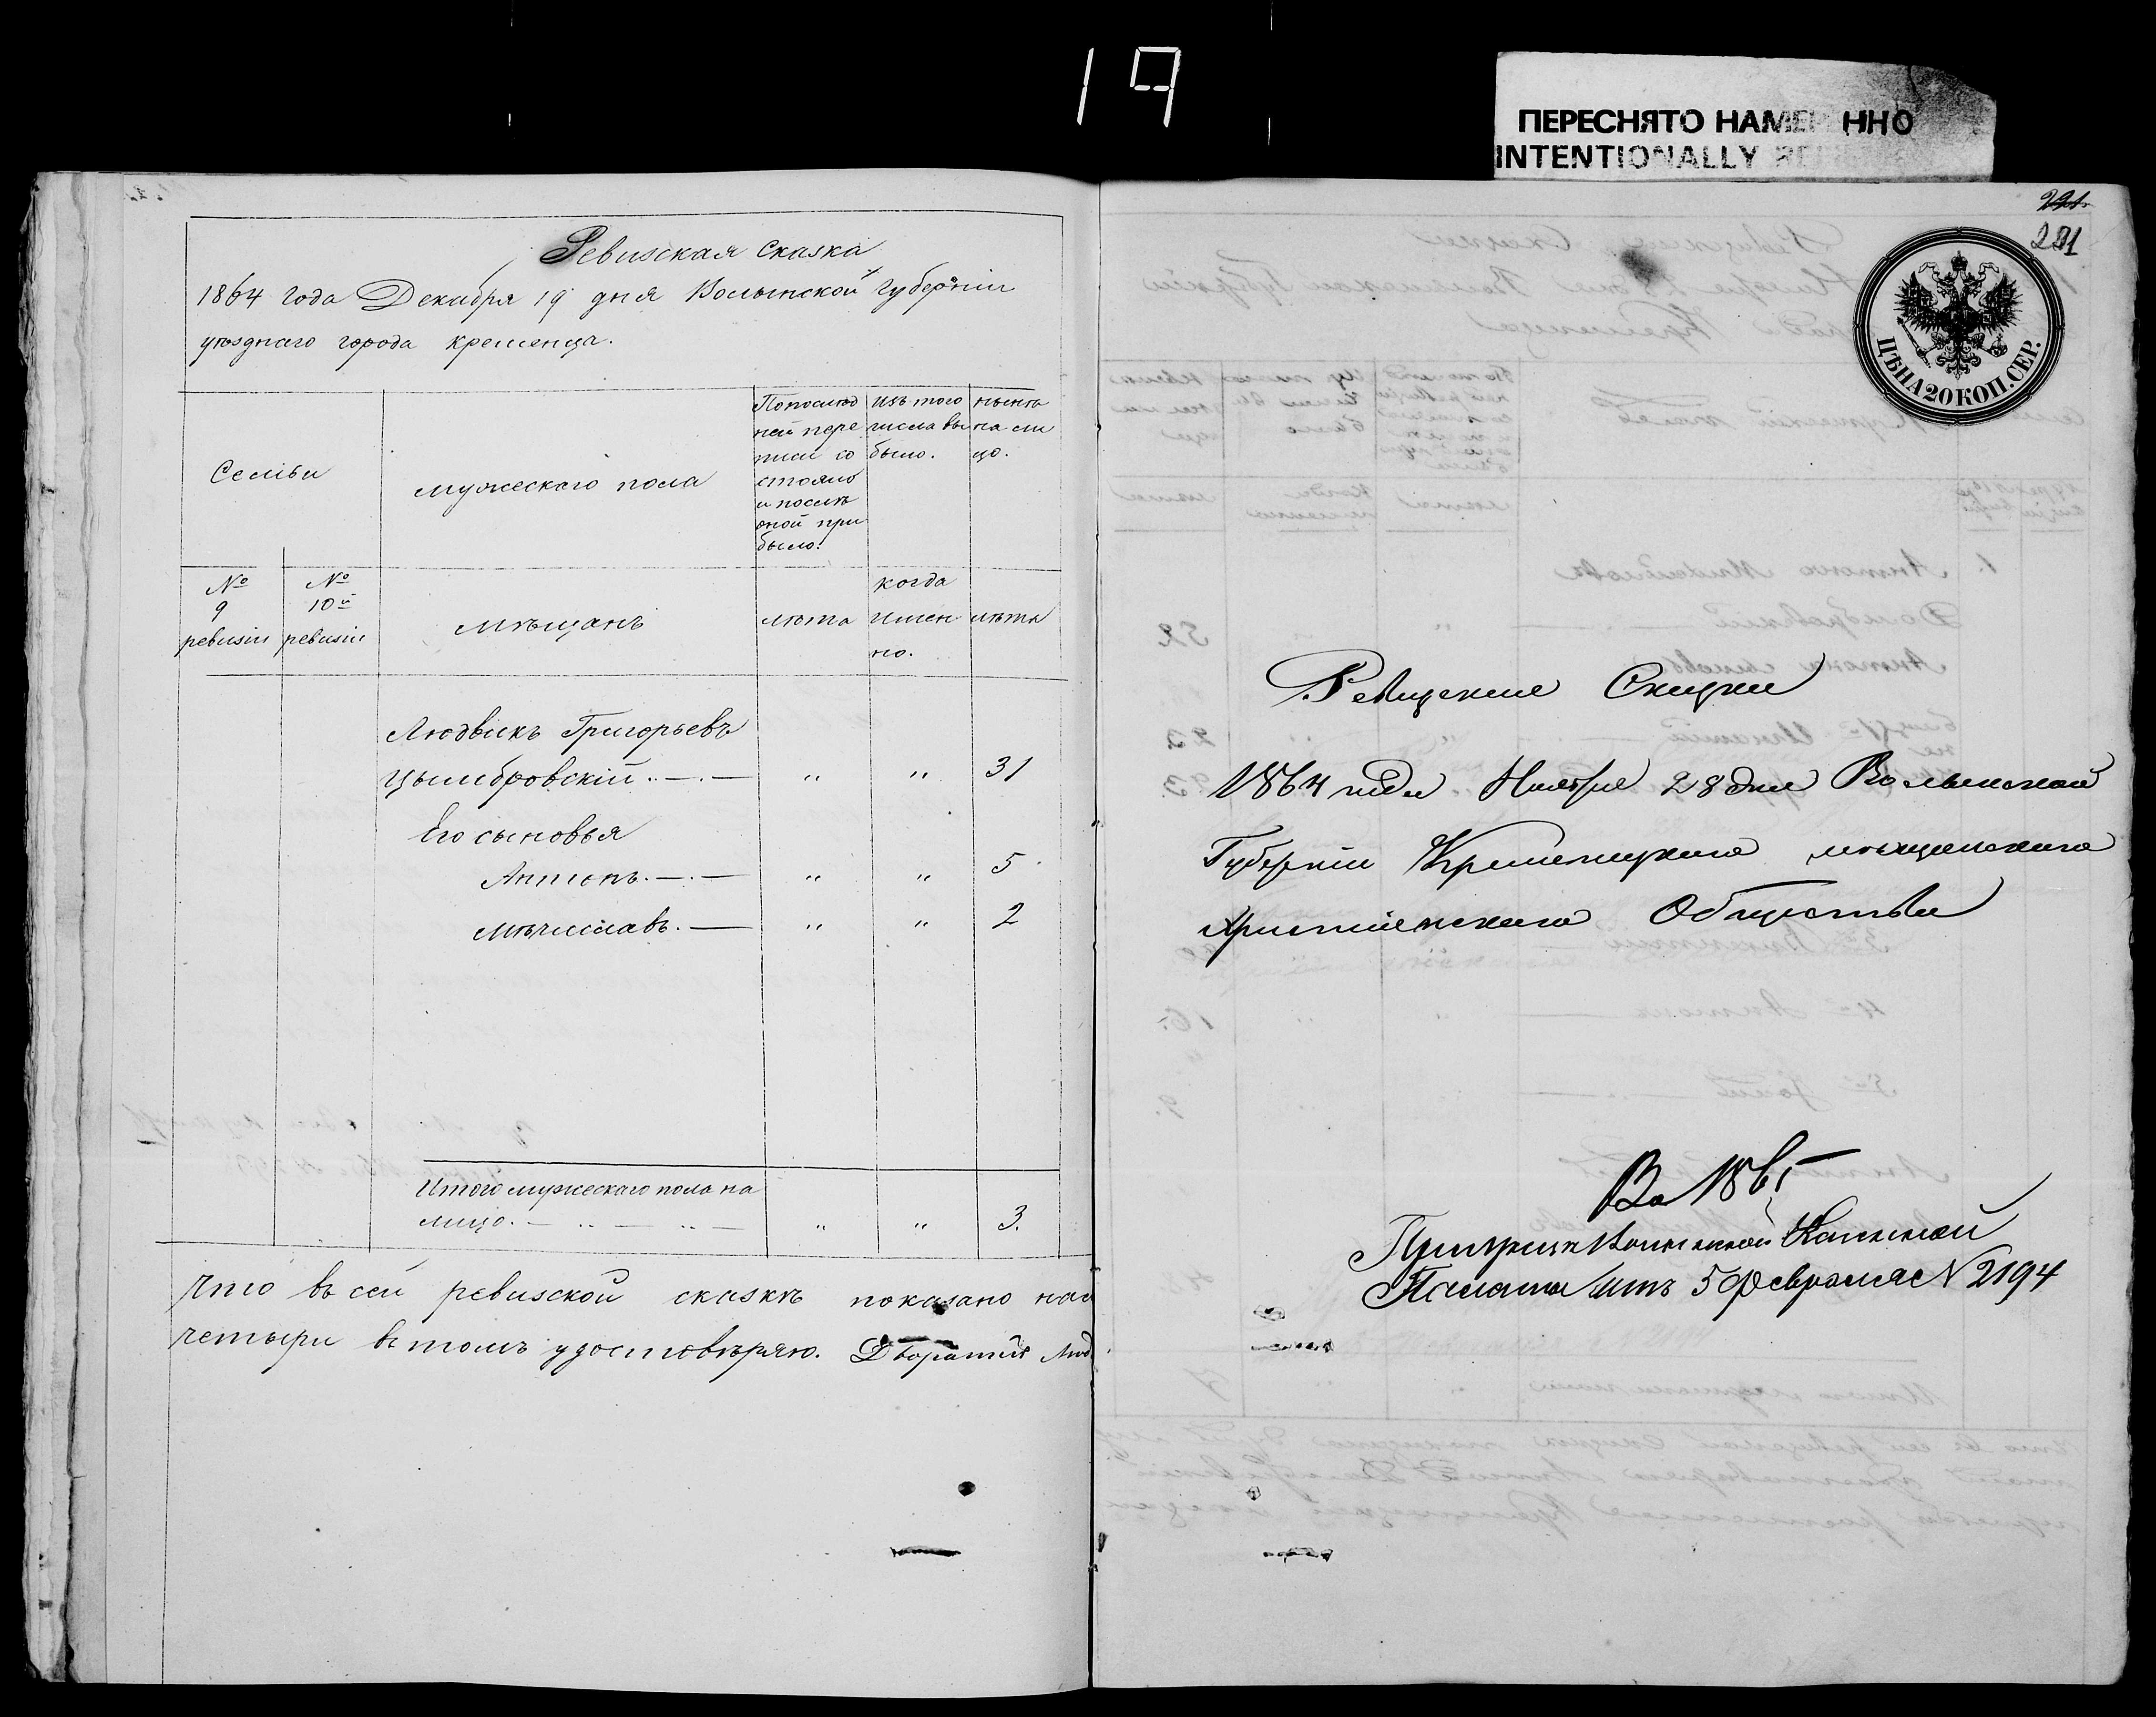 19
ПЕРЕСНЯТО НАМЕР ННО
INTENTIONALLY
Ревизская Сказка
1864 года Декабря 19 дня Волынской Губерніи
уѣзднаго города Кременца.
Семьи
мужескаго пола
По послѣд
ней пере
писи со
стояло
и послѣ
оной при
было.
Изъ того
числа вы
было.
нынѣ
на ли
цо.
№
9
ревизіи
№
10й
ревизіи
мѣщанъ
лѣта
когда
имен
но.
лѣта
Людвикъ Григорьевъ
Цымбровскій . — . — " " 31
Его сыновья
Антонъ. — . — " " 5
Мѣчиславъ. — " " 2
Итого мужескаго пола на
лицо. — .. — .. — " " 3.
Что въ сей ревизской сказкѣ показано
четыри въ томъ удостовѣряю. Люд
221
221
ЦѢНА 20 КОП. СЕР.
Ревизские Сказки
1864 года Ноября 28 дня Волынской
Губерніи Кременецкаго мѣщанскаго
Христіанскаго Общества
Волынской Казенной
Палаты отъ 5 Февраля № 2194